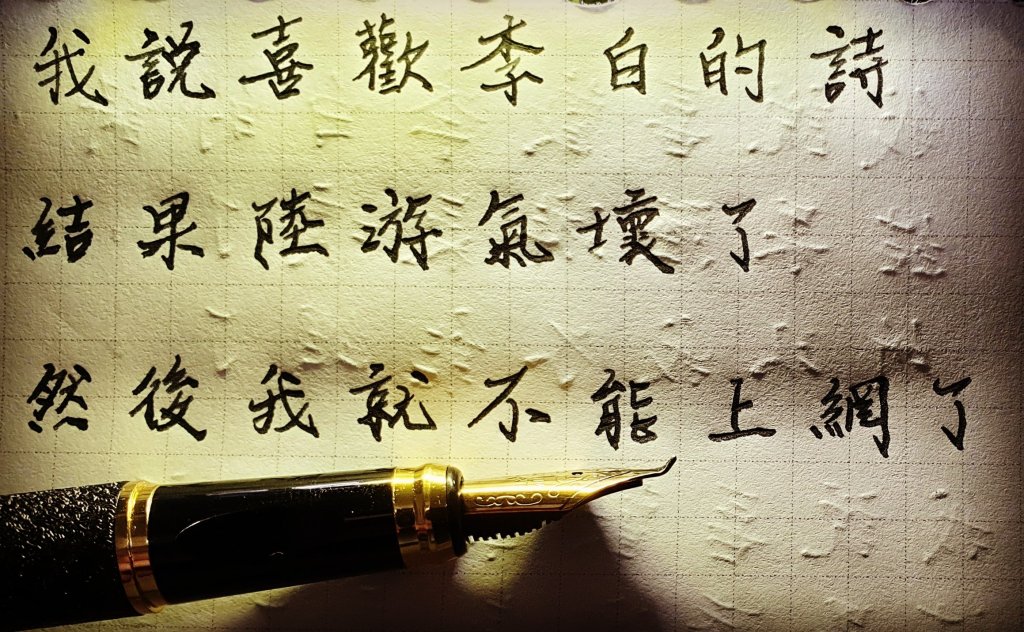 我說喜歡李白的詩
結果陸游氣壞了
然後我就不能上網了